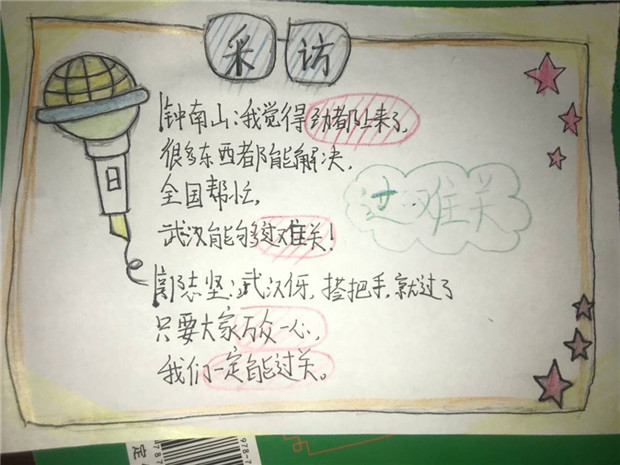 采访
钟南山:我觉得劲都上来了,
很多东西都能解决,
全国帮忙,
武汉能够过难关!
过难关
郭志坚:武汉伢,搭把手,就过了
只要大家万众一心,
我们一定能过关。
978-7
定